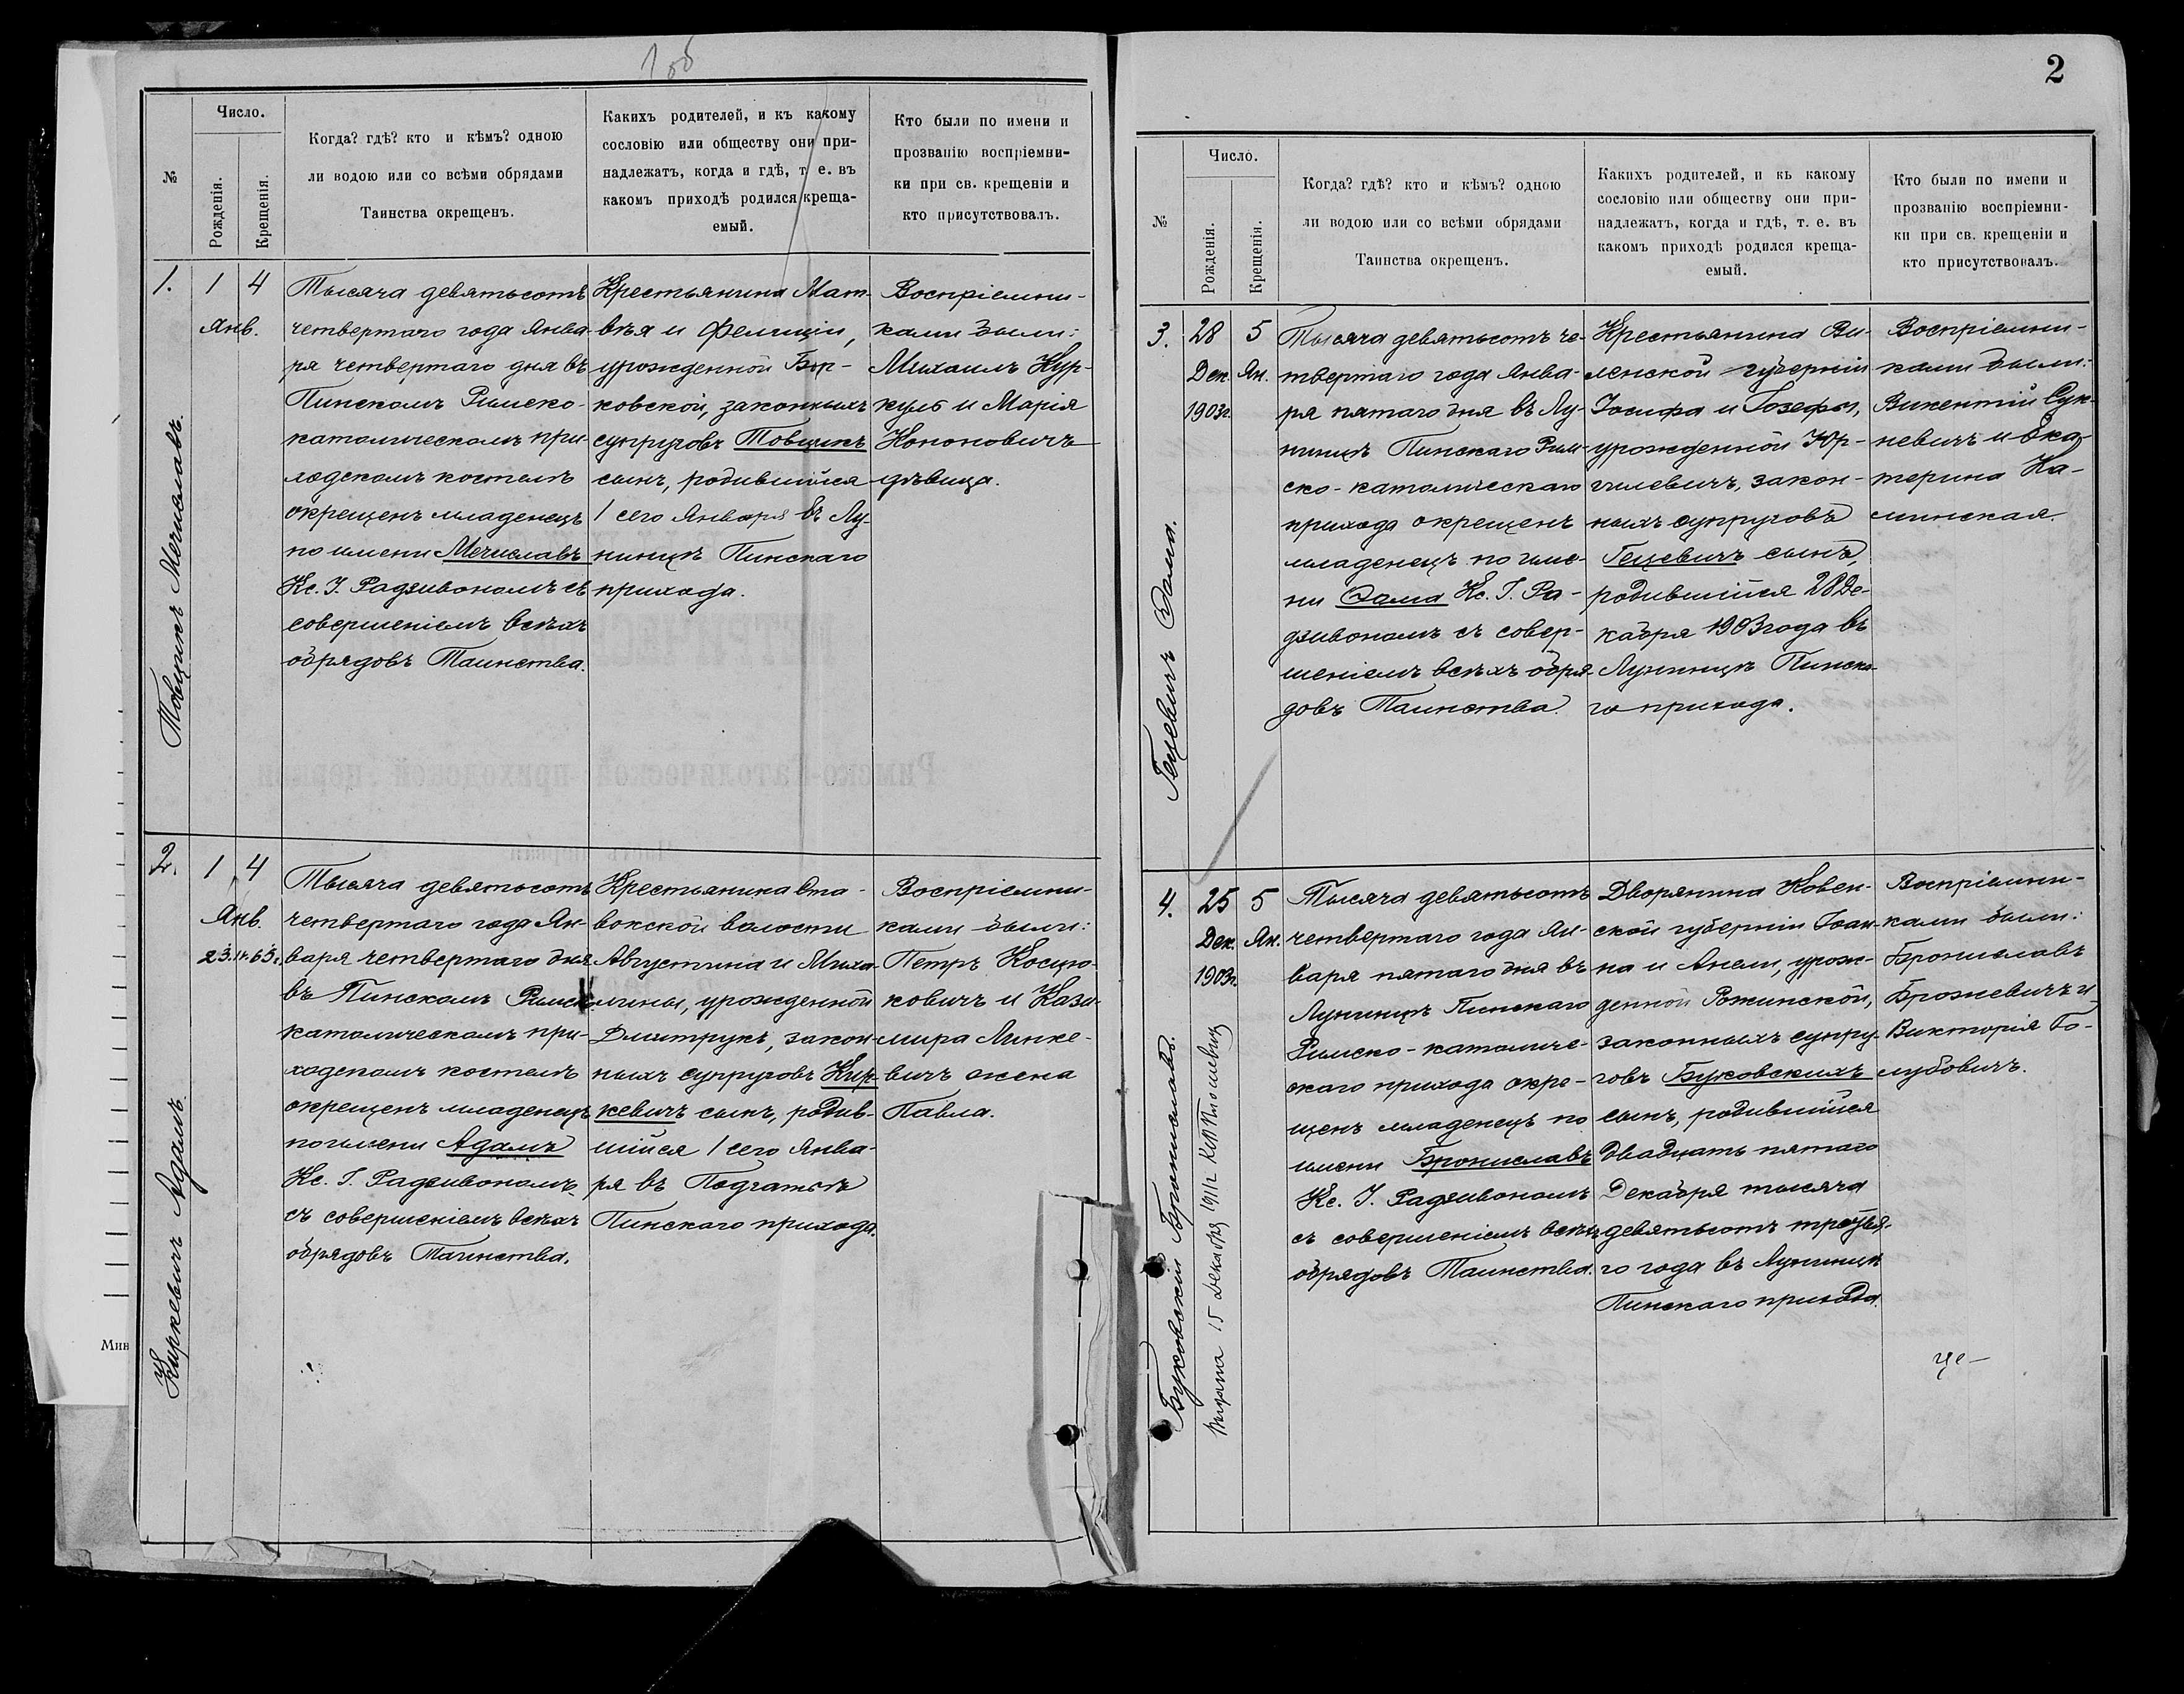 1 об
Число.
№
Рожденія.
Крещенія.
Когда? гдѣ? кто и кѣмъ? одною
ли водою или со всѣми обрядами
Таинства окрещенъ.
Какихъ родителей, и къ какому
сословію или обществу они при-
надлежатъ, когда и гдѣ, т. е. въ
какомъ приходѣ родился креща-
емый.
Кто были по имени и
прозванію воспріемни-
ки при св. крещеніи и
кто присутствовалъ.
1.
Товщикъ Мечиславъ.
1 4
Янв.
Тысяча девятьсотъ
четвертаго года Янва-
ря четвертаго дня въ
Пинскомъ Римско-
католическомъ при-
ходскомъ костелѣ
окрещенъ младенецъ
по имени Мечиславъ
Кс. І. Радзивономъ съ
совершеніемъ всѣхъ
обрядовъ Таинства.
Крестьянина Мат-
вѣя и Фелиціи,
урожденной Бор-
ковской, законныхъ
супруговъ Товщикъ
сынъ, родившійся
1 сего Января въ Лу-
нинцѣ Пинскаго
прихода.
Воспріемни-
ками были:
Михаилъ Кур-
куль и Марія
Кононовичъ
дѣвица.
2.
Киркевичъ Адамъ.
1 4
Янв.
23.IV.65г.
Тысяча девятьсотъ
четвертаго года Ян-
варя четвертаго дня
въ Пинскомъ Римско
католическомъ при-
ходскомъ костелѣ
окрещенъ младенецъ
по имени Адамъ
Кс. І. Радзивономъ
съ совершеніемъ всѣхъ
обрядовъ Таинства.
Крестьянина Ста-
вокской волости
Августина и Миха-
лины, урожденной
Дмитрукъ, закон-
ныхъ супруговъ Кир-
кевичъ сынъ, родив-
шійся 1 сего Янва-
ря въ
Пинскаго прихода.
Воспріемни-
ками были:
Петръ Косцю-
ковичъ и Кази-
мира Линке-
вичъ жена
Павла.
Мин
2
Число.
№
Рожденія.
Крещенія.
Когда? гдѣ? кто и кѣмъ? одною
ли водою или со всѣми обрядами
Таинства окрещенъ.
Какихъ родителей, и къ какому
сословію или обществу они при-
надлежатъ, когда и гдѣ, т. е. въ
какомъ приходѣ родился креща-
емый.
Кто были по имени и
прозванію воспріемни-
ки при св. крещеніи и
кто присутствовалъ.
3.
Гецевичъ Ѳома.
28 5
Дек. Ян.
1903г.
Тысяча девятьсотъ че-
твертаго года Янва-
ря пятаго дня въ Лу-
нинцѣ Пинскаго Рим-
ско-католическаго
прихода окрещенъ
младенецъ по име-
ни Ѳома Кс. І. Ра-
дзивономъ съ совер-
шеніемъ всѣхъ обря-
довъ Таинства.
Крестьянина Ви-
ленской губерніи
Іосифа и Іозефы,
урожденной Юр-
гилевичъ, закон-
ныхъ супруговъ
Гецевичъ сынъ,
родившійся 28 Де-
кабря 1903 года въ
Лунинцѣ Пинска-
го прихода.
Воспріемни-
ками были:
Викентій Сук-
невичъ и Ека-
терина Ка-
минская.
4.
Буковскій Брониславъ.
15 Декабря 1911г
25 5
Дек. Ян.
1903г.
Тысяча девятьсотъ
четвертаго года Ян-
варя пятаго дня въ
Лунинцѣ Пинскаго
Римско-католиче-
скаго прихода окре-
щенъ младенецъ по
имени Брониславъ
Кс. І. Радзивономъ
съ совершеніемъ всѣхъ
обрядовъ Таинства.
Дворянина Ковен-
ской губерніи Іоан-
на и Анели, урож-
денной Рожинской,
законныхъ супру-
говъ Буковскихъ
сынъ, родившійся
двадцать пятаго
Декабря тысяча
девятьсотъ третья-
го года въ Лунинцѣ
Пинскаго прихода.
Воспріемни-
ками были:
Брониславъ
Брожевичъ и
Викторія Го-
лубовичъ.